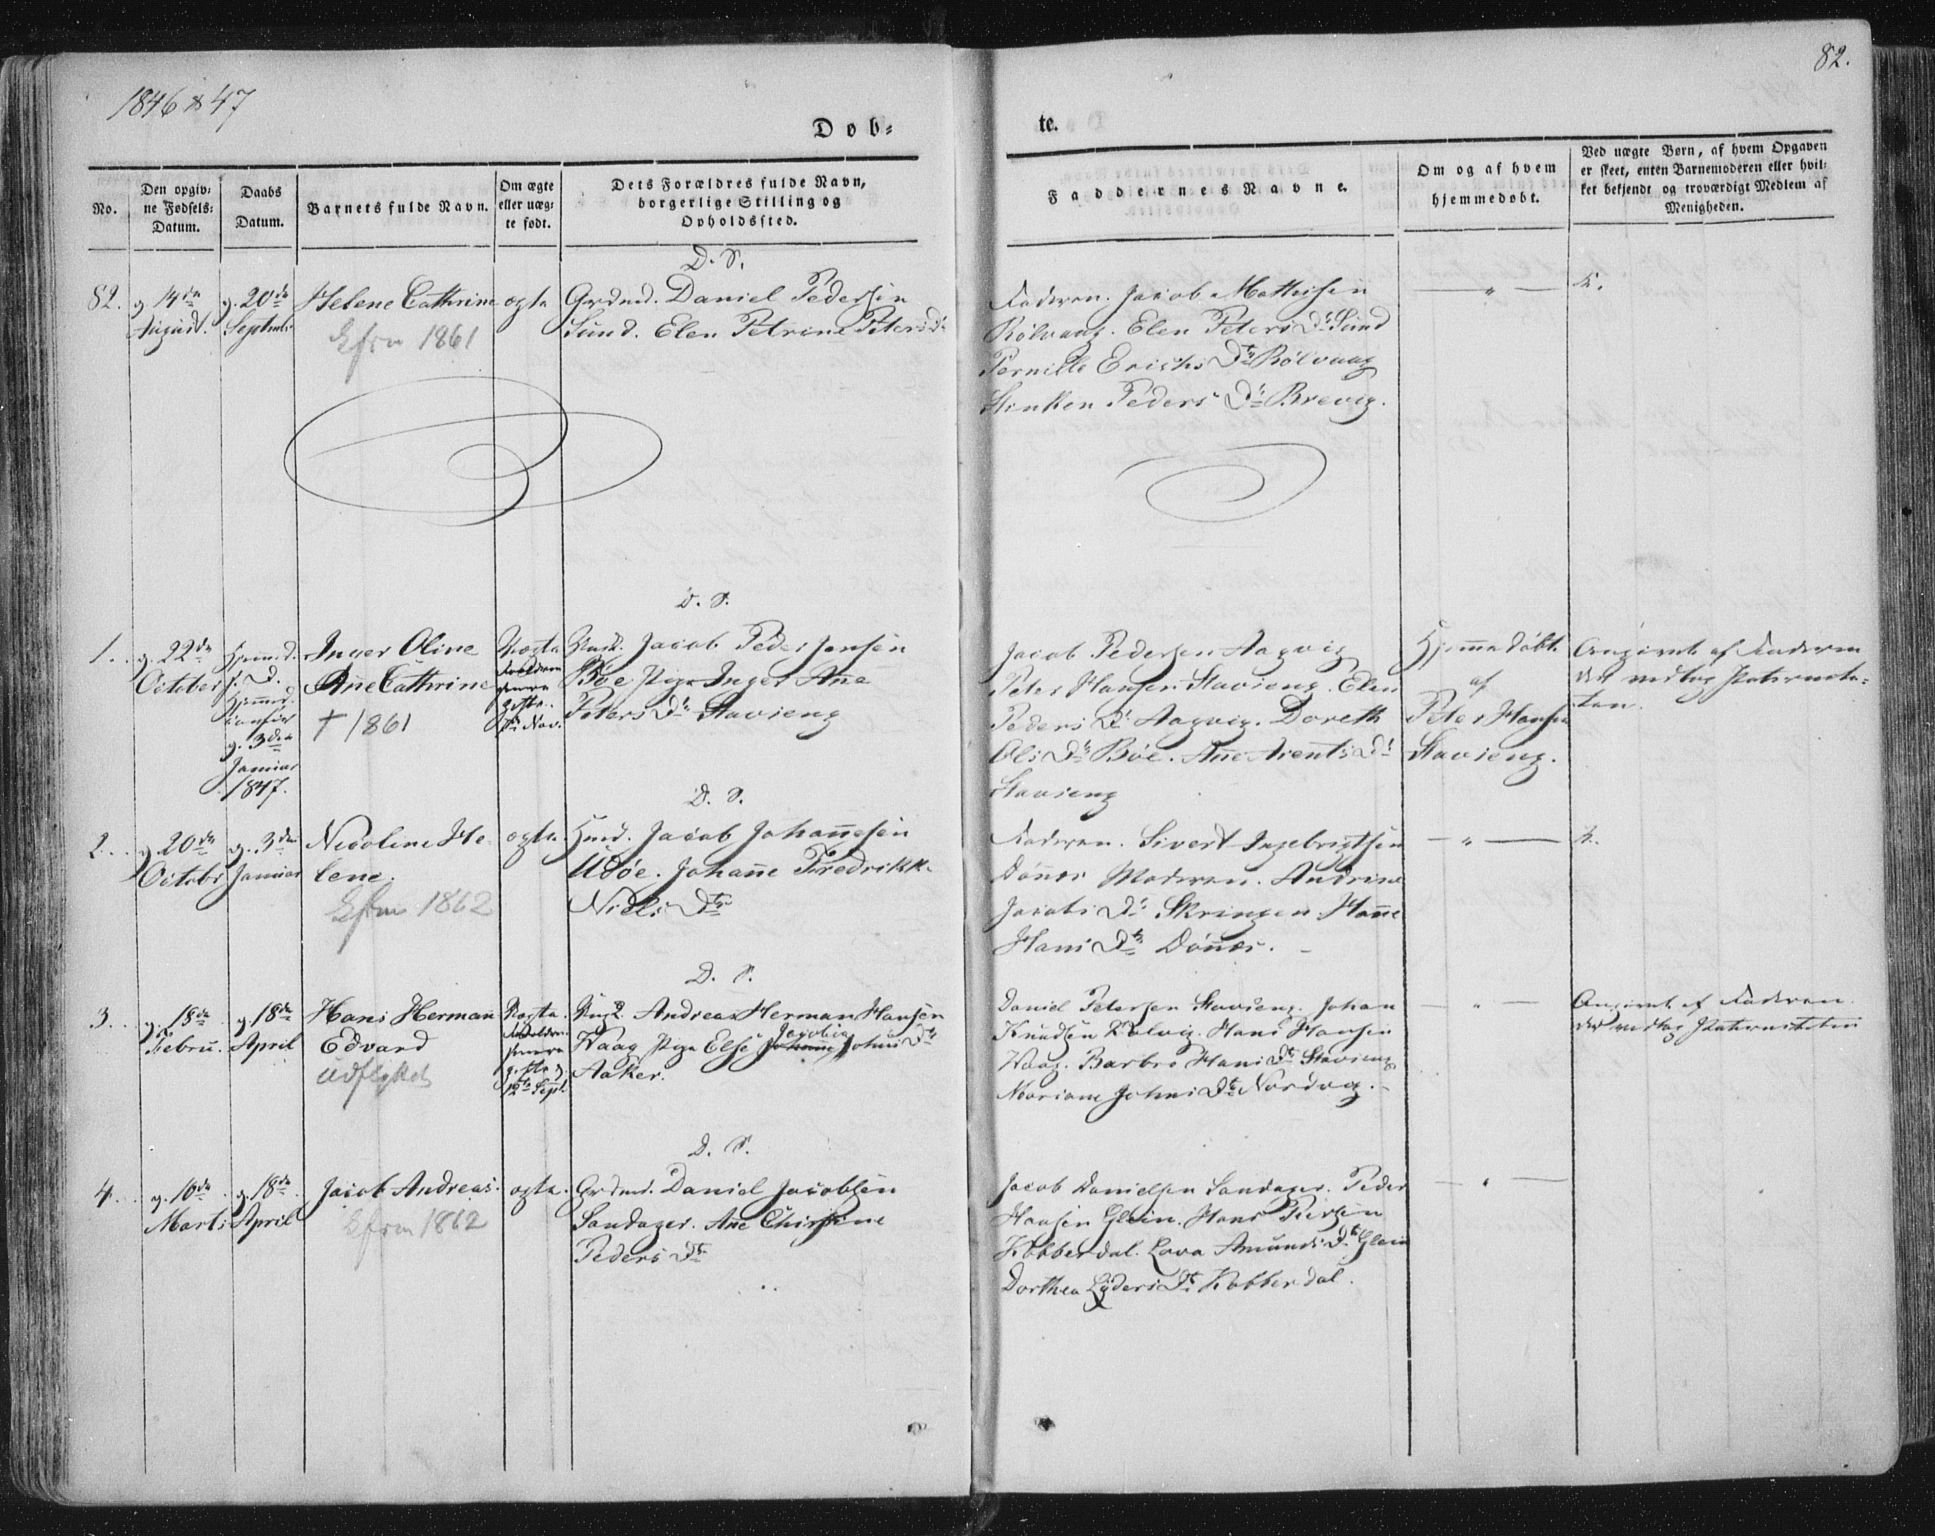 1846 & 47
82.
Døb-
te.
No.
Den opgiv-
ne Fødsels-
Datum.
Daabs
Datum.
Barnets fulde Navn.
Om ægte
eller uæg-
te født.
Dets Forældres fulde Navn,
borgerlige Stilling og
Opholdssted.
Faddernes Navne.
Om og af hvem
hjemmedøbt.
Ved uægte Børn, af hvem Opgaven
er skeet, enten Barnemoderen eller hvil-
ket bekjendt og troværdigt Medlem af
Menigheden.
D. S.
82.
14de
August.
20de
Septmb
Helene Cathrine
1861
ægte
Grdmd. Daniel Pedersen
Sund. Elen Petrine Peters Dr
Faderen. Jacob Mathisen
Rølvaag. Elen Peters Dr Sund
Pernille Erichs Dtr Rølvaag
Stinken Peders Dr Brevig.
D. S.
1.
22de
October
3die
Januar
1847.
Inger Oline
Ane Cathrine
† 1861
Uægte
Jacob Peder Jensen
Bøe Pige Inger Ane
Peters Dr Stavseng
Jacob Pedersen Aagvig
Peter Hansen Stavseng. Elen
Peders Dr Aagvig. Doreth
Ols Dtr Bøe. Ane Arents Dr
Stavseng
Hjemmedøbt
af
Peter Hansen
Stavseng.
Angivet af Faderen
der vedtog Paternite-
ten.
D. S.
2.
20de
Octobr
3die
Januar
Nicoline He-
lene.
1862
ægte.
Jacob Johannesen
Udøe. Johanne Fredrikke
Niels Dtr
Faderen. Sivert Ingebrigtsen
Dønes Moderen. Andrine
Jacobs Dr Skringen. Hanne
Hans Dtr Dønes.
D. S.
3.
18de
Febru.
18de
April
Hans Herman
Edvard
udflyttet
Uægte.
12te Sept.
Andreas Herman Hansen
Vaag Pige Else Johanne Jacobia Johns Dtr
Aaker.
Daniel Petersen Stavseng. Johan
Knudsen Kolvig. Hans Hansen
Vaag. Barbro Hans Dtr Stavseng
Mariane Johns Dtr Nordvig.
Angivet af Faderen
der vedtog Paterniteten
D. S.
4.
10de
Marts
18de
April
Jacob Andreas.
1862
ægte.
Grdmd. Daniel Jacobsen
Sandager. Ane Chirstine
Peders Dtr
Jacob Danielsen Sandager. Peder
Hansen Glein. Hans Persen
Kobberdal. Lava Amunds Dtr Glein
Dorthea Lyders Dtr Kobberdal.